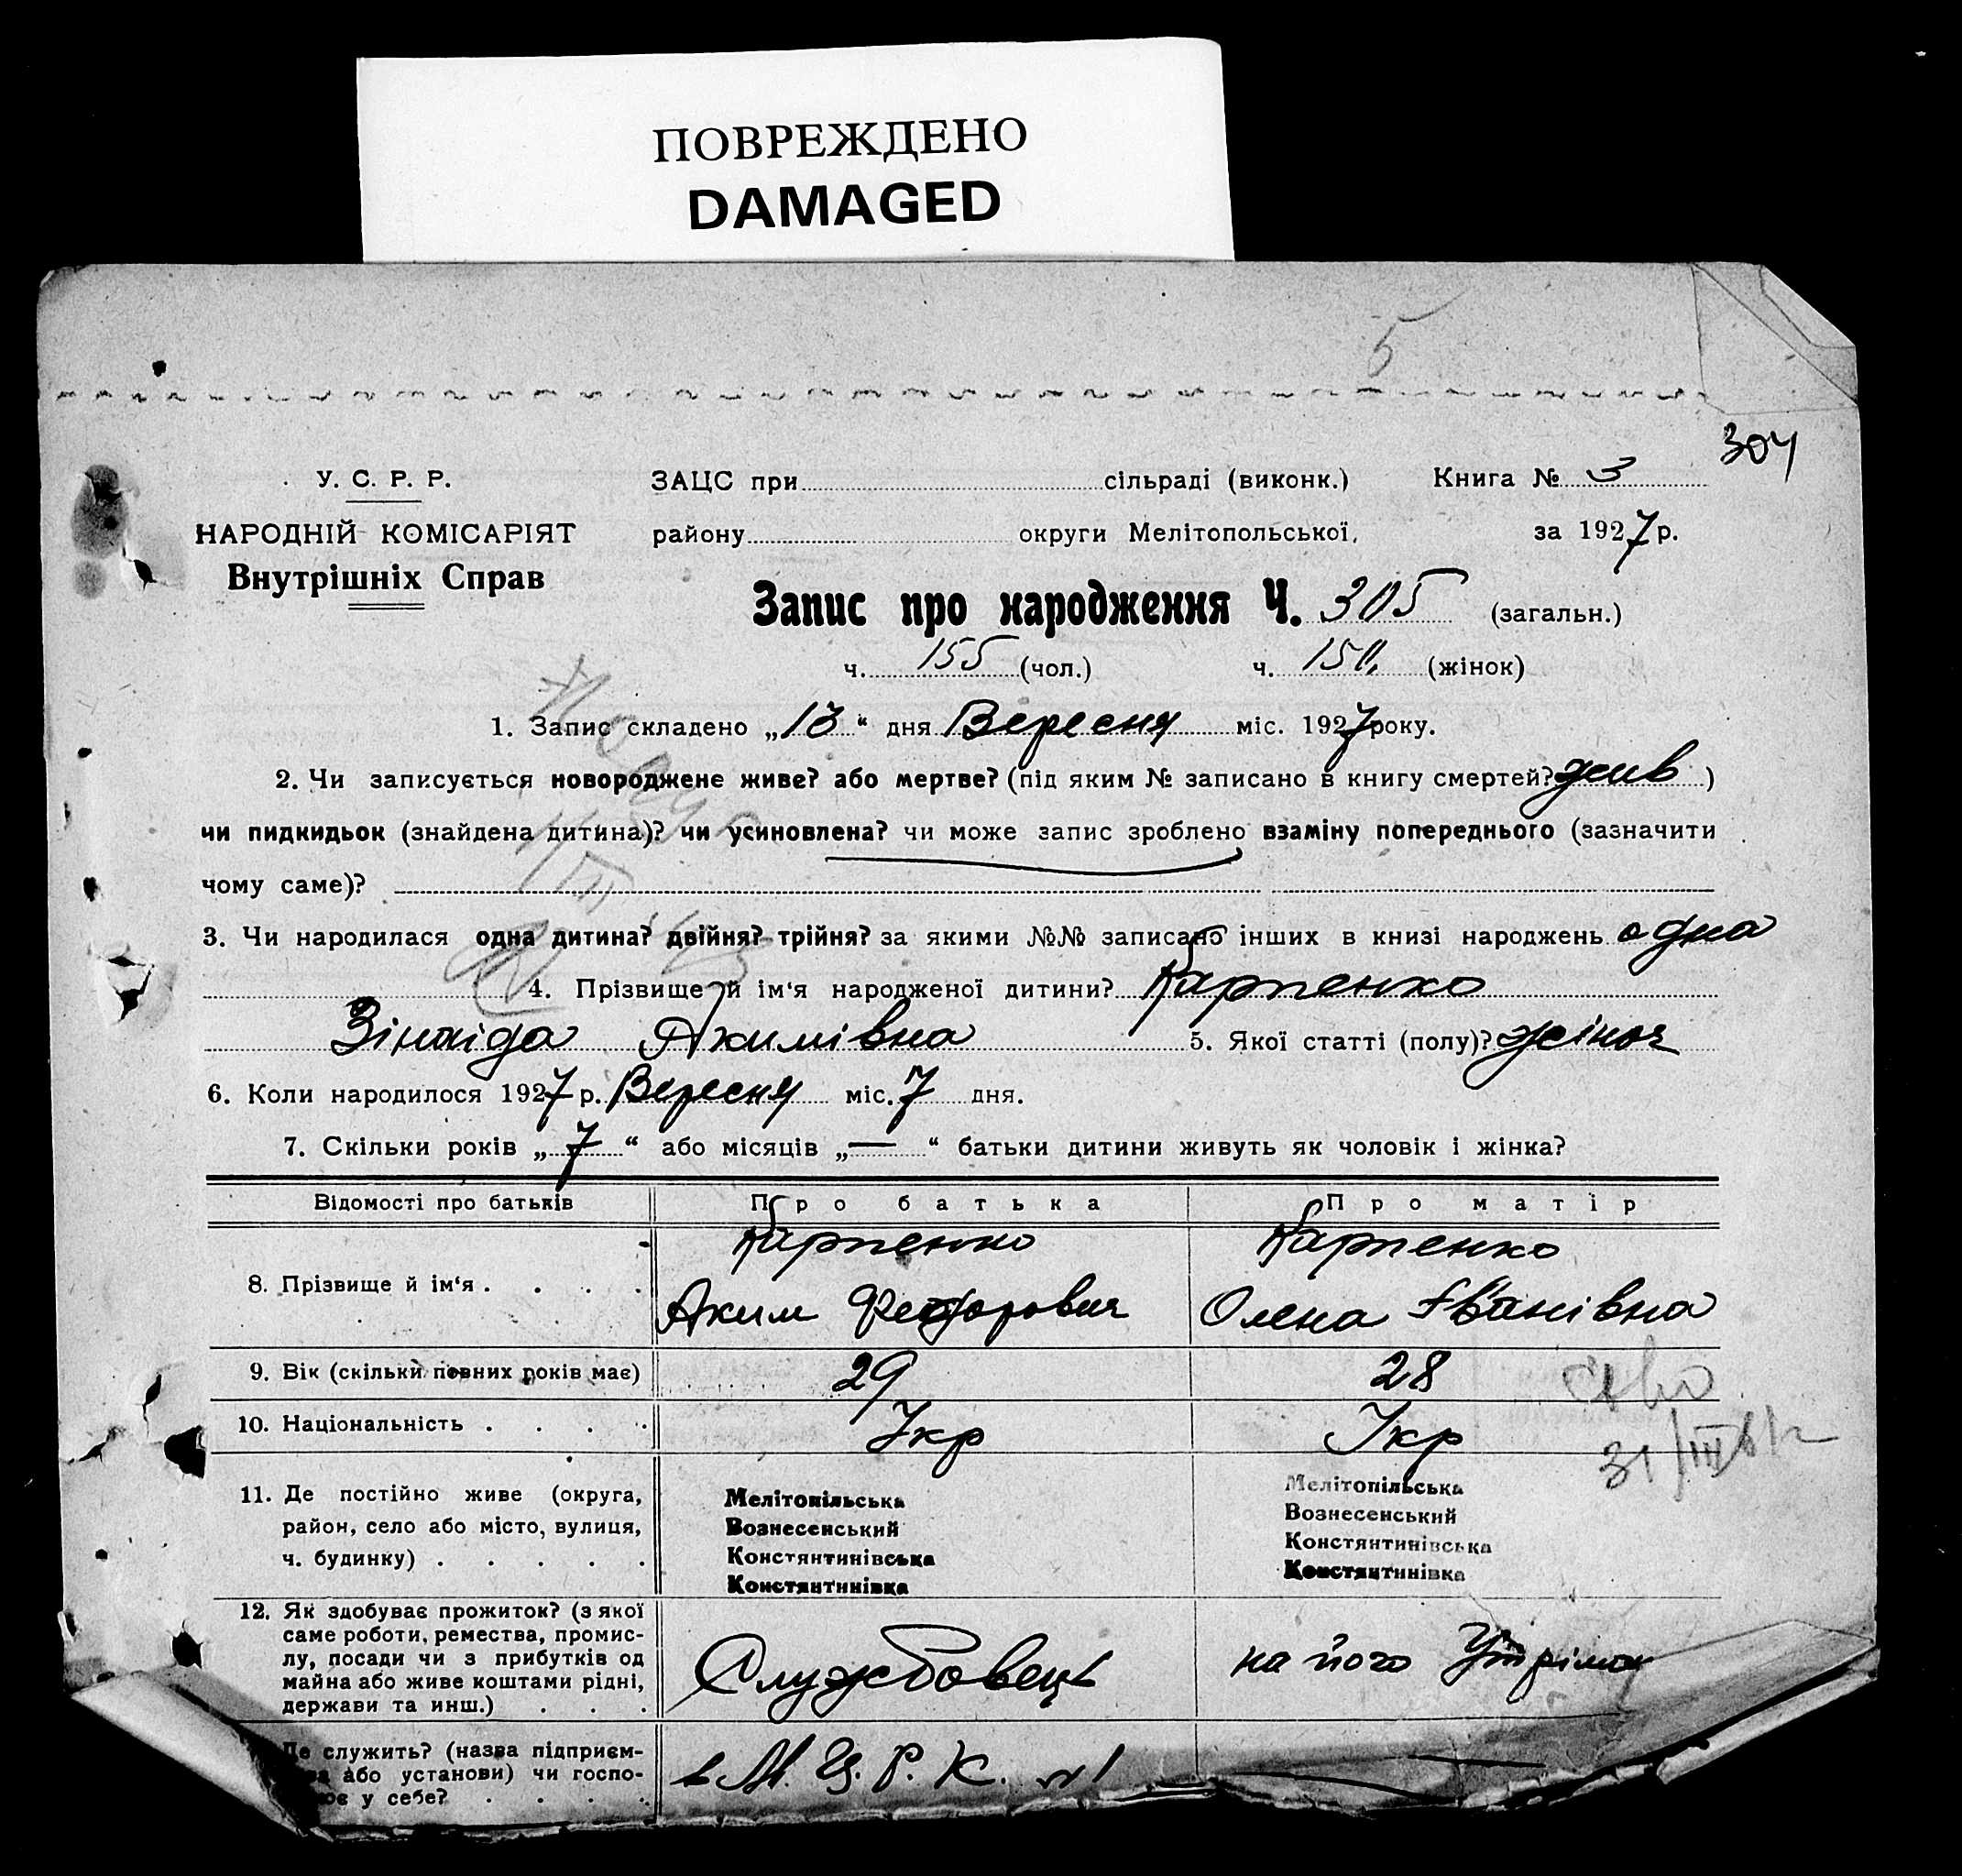 ПОВРЕЖДЕНО
DAMAGED
5
304
У. С. Р. Р.
НАРОДНІЙ КОМІСАРІЯТ
Внутрішніх Справ
ЗАЦС при сільраді (виконк.) Книга № 3
району округи Мелітопольської, за 1927 р.
Запис про народження Ч. 305 (загальн.)
ч. 155 (чол.) ч. 150, (жінок)
1. Запис складено „13“ дня Вересня міс. 1927 року.
2. Чи записується новороджене живе? або мертве? (під яким № записано в книгу смертей? жив)
чи пидкидьок (знайдена дитина)? чи усиновлена? чи може запис зроблено взаміну попереднього (зазначити
чому саме)?
3. Чи народилася одна дитина? двійня? трійня? за якими №№ записано інших в книзі народжень одна
4. Прізвище й ім‘я народженої дитини? Карпенко
Зінаіда Акимівна 5. Якої статті (полу)? жіноч
6. Коли народилося 1927 р. Вересня міс. 7 дня.
7. Скільки років „7“ або місяців „—“ батьки дитини живуть як чоловік і жінка?
Відомості про батьків Про батька Про матір
8. Прізвище й ім‘я . . . . Карпенко Карпенко
Аким Федорович Олена Іванівна
9. Вік (скільки повних років має) 29 28
10. Національність . . . . Укр Укр
31/III
11. Де постійно живе (округа, район, село або місто, вулиця, ч. будинку) . . . . .
Мелітопільська Мелітопільська
Вознесенський Вознесенський
Констянтинівська Констянтинівська
Констянтинівка Констянтинівка
12. Як здобуває прожиток? (з якої
саме роботи, ремества, промис-
лу, посади чи з прибутків од
майна або живе коштами рідні,
держави та инш.) . . .
Службовець на його Утріман
Де служить? (назва підприєм-
ва або установи) чи госпо-
ює у себе? . . . .
в М. Р. К. №1